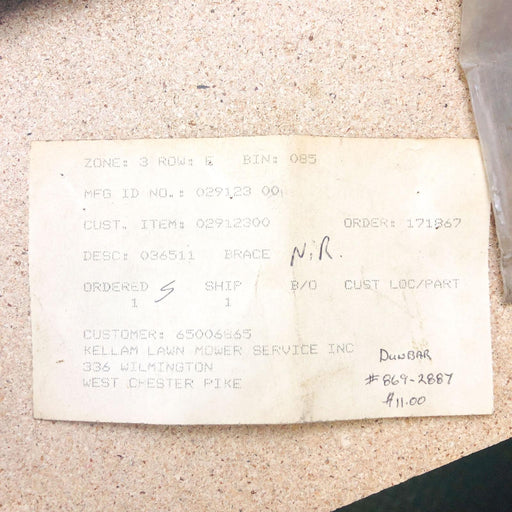 ZONE: 3 ROW: E BIN: 085
MFG ID NO.: 029123 00
CUST. ITEM: 02912300 ORDER: 171867
DESC: 036511 BRACE N.R.
ORDERED S SHIP B/O CUST LOC/PART
1 1
CUSTOMER: 65006865
KELLAM LAWN MOWER SERVICE INC
336 WILMINGTON
WEST CHESTER PIKE
DUNBAR
#869-2887
$11.00